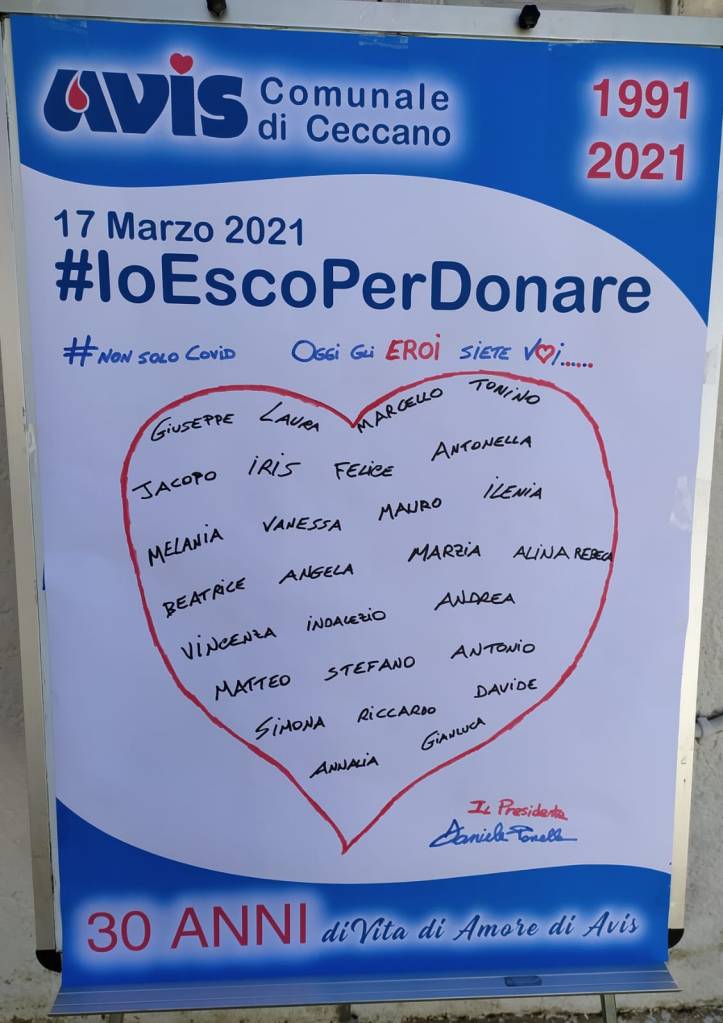 AVIS Comunale
di Ceccano
1991
2021
17 Marzo 2021
#IoEscoPerDonare
# NON SOLO COVID OGGI GLI EROI SIETE VOI......
GIUSEPPE LAURA MARCELLO TONINO
JACOPO IRIS FELICE ANTONELLA
MELANIA VANESSA MAURO ILENIA
BEATRICE ANGELA MARZIA ALINA REBECA
VINCENZA INDALEZIO ANDREA
MATTEO STEFANO ANTONIO
SIMONA RICCARDO DAVIDE
ANNALIA GIANLUCA
IL Presidente
30 ANNI di Vita di Amore di Avis